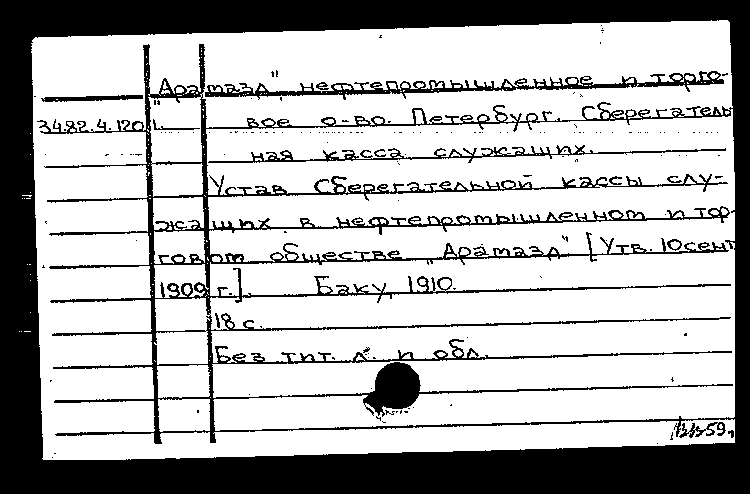 "Арамазд", нефтепромышленное и торго-
34.82.4.120 1. вое о-во. Петербург. Сберегатель
ная касса служащих.
Устав Сберегательной кассы слу-
жащих в нефтепромышленном и тор-
говом обществе "Арамазд" [Утв. 10 сент
1909 г.]. Баку, 1910.
18 с.
Без тит. л. и обл.